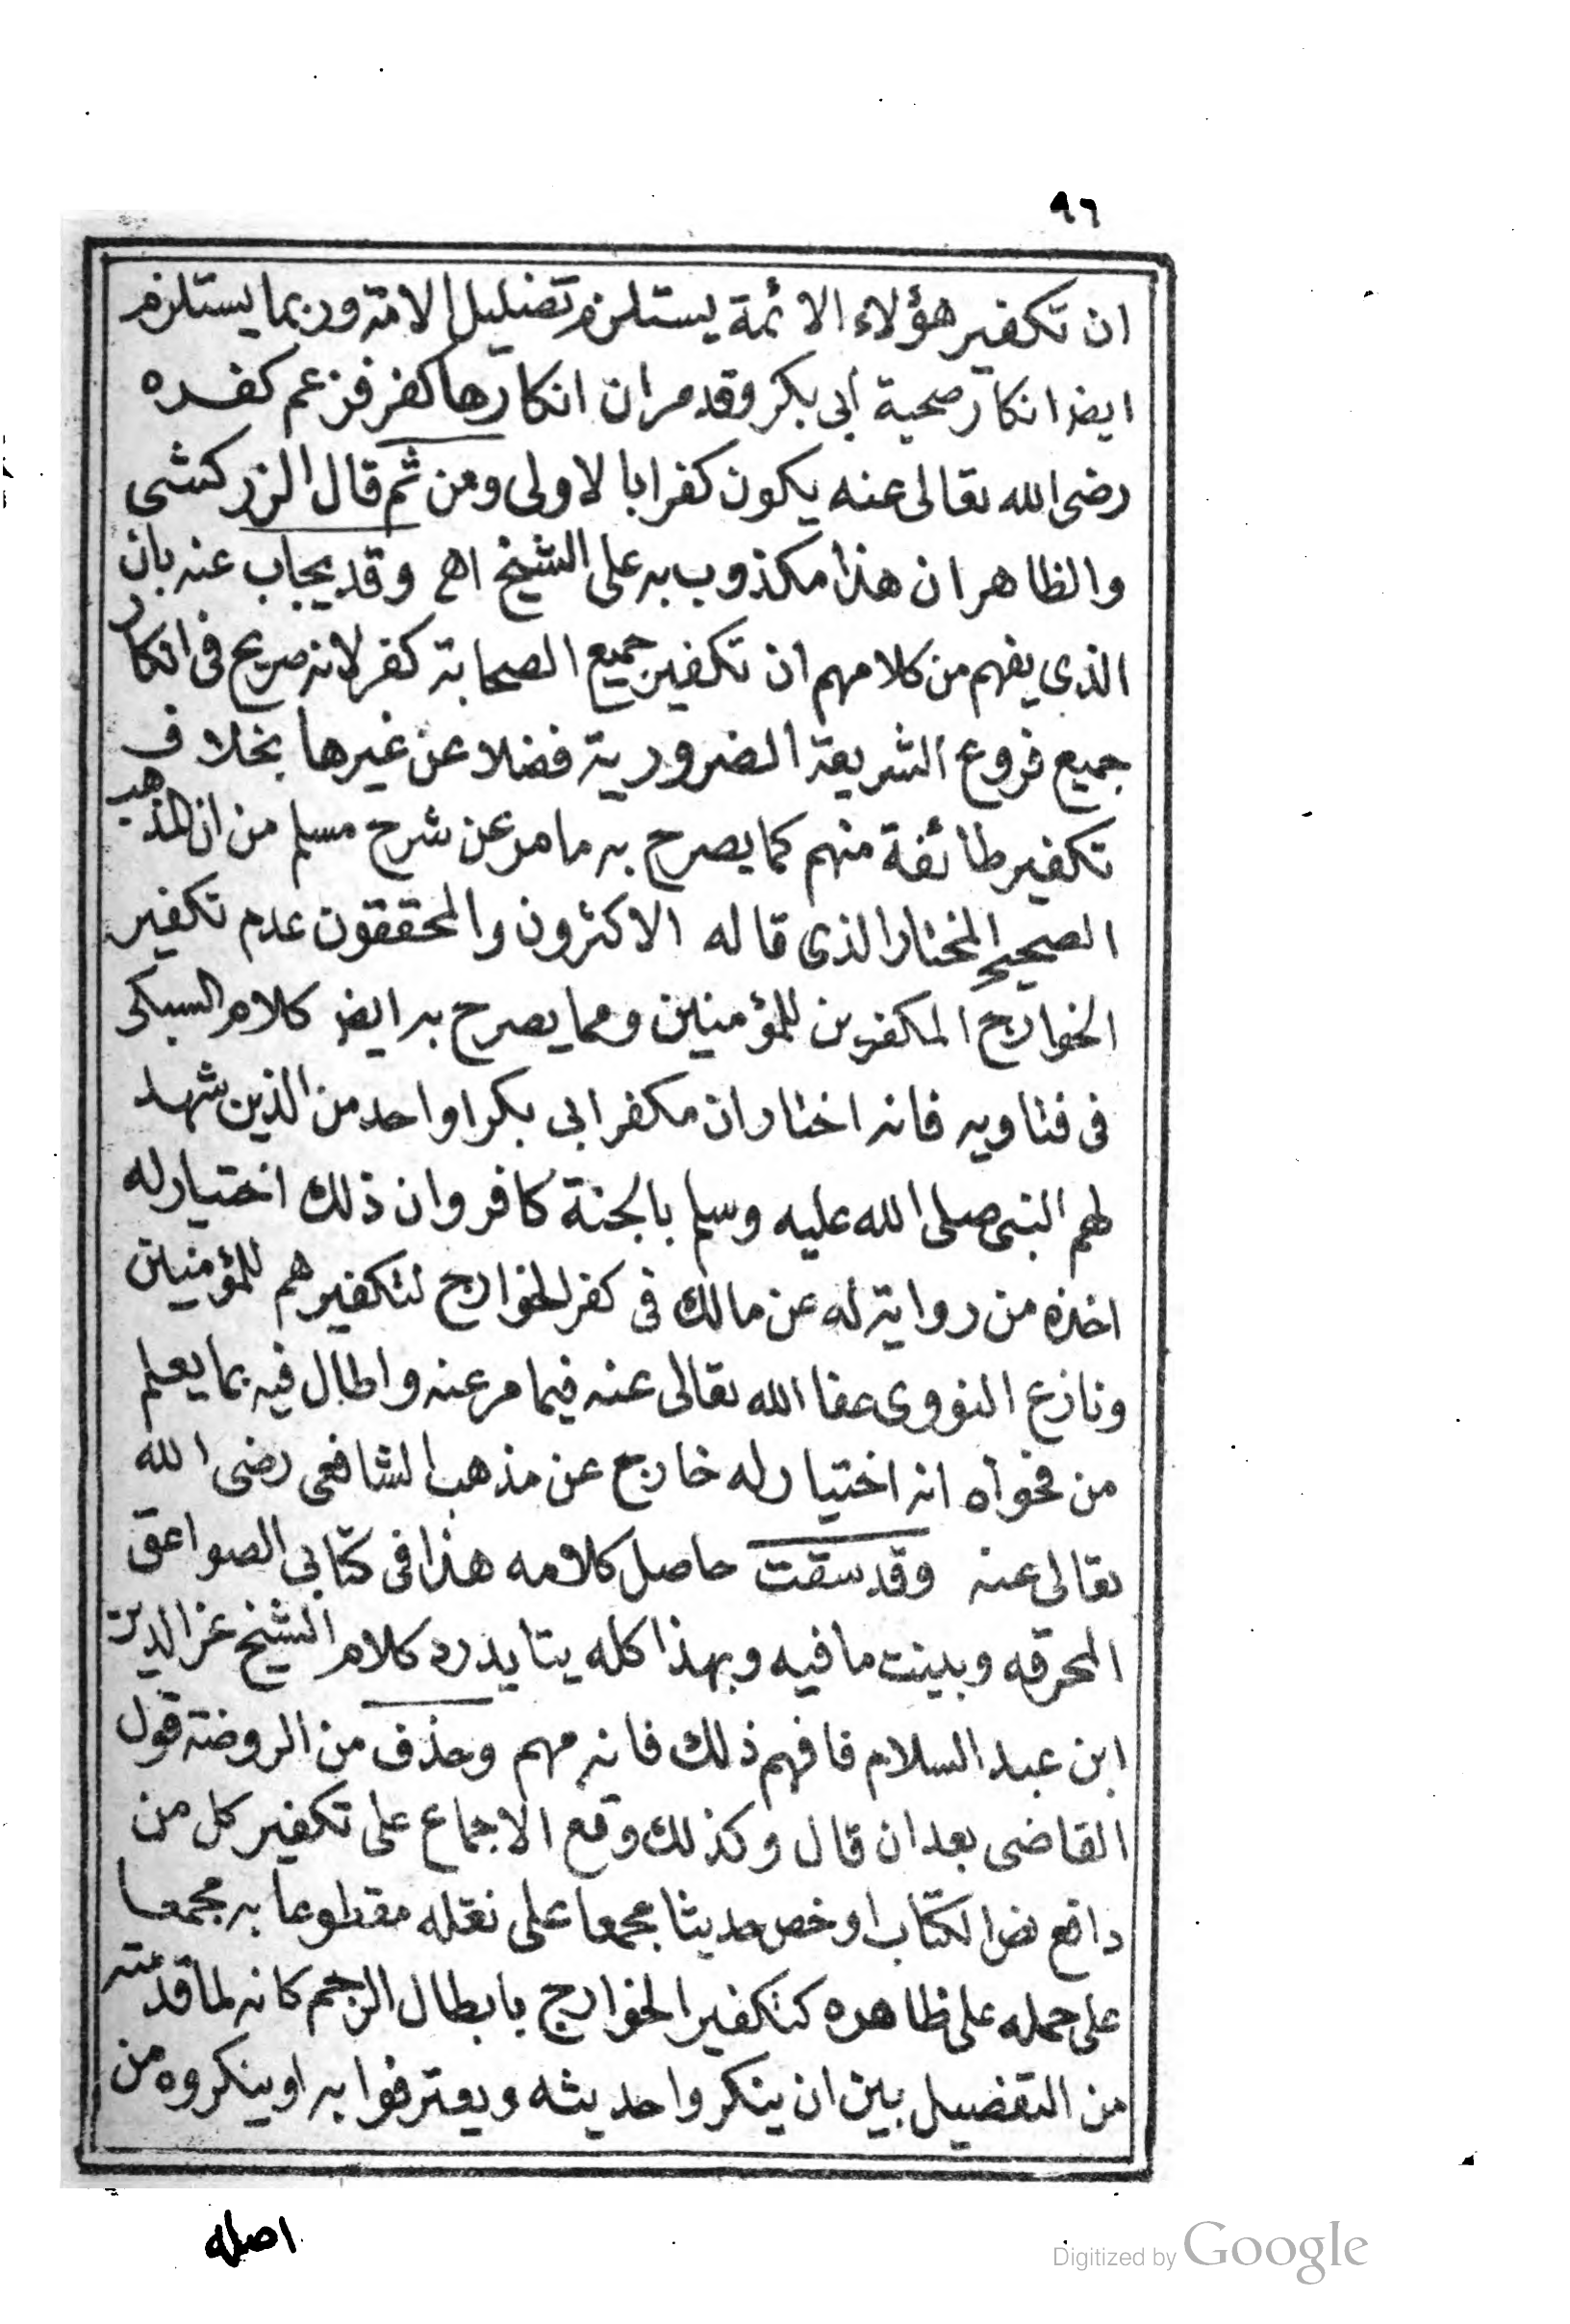 ٩٦
ان تكفير هؤلاء الائمة يستلزم تضليل الامة وربما يستلزم
ايضا انكار صحبة ابى بكر وقد مر ان انكارها كفر فزعم كفره
رضى الله تعالى عنه يكون كفرا بالاولى ومن ثم قال الزركشى
والظاهر ان هذا مكذوب به على الشيخ اهـ وقد يجاب عنه بان
الذى يفهم من كلامهم ان تكفير جميع الصحابة كفر لانه صريح فى انكار
جميع فروع الشريعة الضرورية فضلا عن غيرها بخلاف
تكفير طائفة منهم كما يصرح به ما مر عن شرح مسلم من ان المذهب
الصحيح المختار الذى قاله الاكثرون والمحققون عدم تكفير
الخوارج المكفرين للمؤمنين ومما يصرح به ايضا كلام السبكى
فى فتاويه فانه اختار ان مكفر ابى بكر او احد من الذين شهد
لهم النبى صلى الله عليه وسلم بالجنة كافر وان ذلك اختيار له
اخذه من رواية له عن مالك فى كفر الخوارج لتكفيرهم للمؤمنين
ونازع النووى عفا الله تعالى عنه فيما مر عنه واطال فيه بما يعلم
من فحواه انه اختيار له خارج عن مذهب الشافعى رضى الله
تعالى عنه وقد سقت حاصل كلامه هذا فى كتابى الصواعق
المحرقه وبينت ما فيه وبهذا كله يتايد رد كلام الشيخ عز الدين
ابن عبد السلام فافهم ذلك فانه مهم وحذف من الروضة قول
القاضى بعد ان قال وكذلك وقع الاجماع على تكفير كل من
دافع نص الكتاب او خص حديثا مجمعا على نقله مقطوعا به مجمعا
على حمله على ظاهره كتكفير الخوارج بابطال الرجم كانه لما قدمته
من التفصيل بين ان ينكروا حديثه ويعترفوا به او ينكروه من
اصله
Digitized by Google